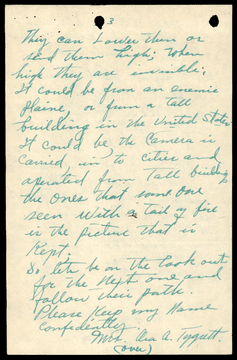 3
They can Lower them or
send them high; when
high they are invisible;
It could be from an enemie
plaine, or from a tall
building in the United States
It could be, the Camera is
carried, in, to Cities and
operated from Tall building
the Ones that some one
seen with a tail of fire
is the picture that is
Kept.
So, lets be on the look out
for the Next one and
follow their path.
Please Keep my Name
Confidently.
Mrs. A. 
(over)